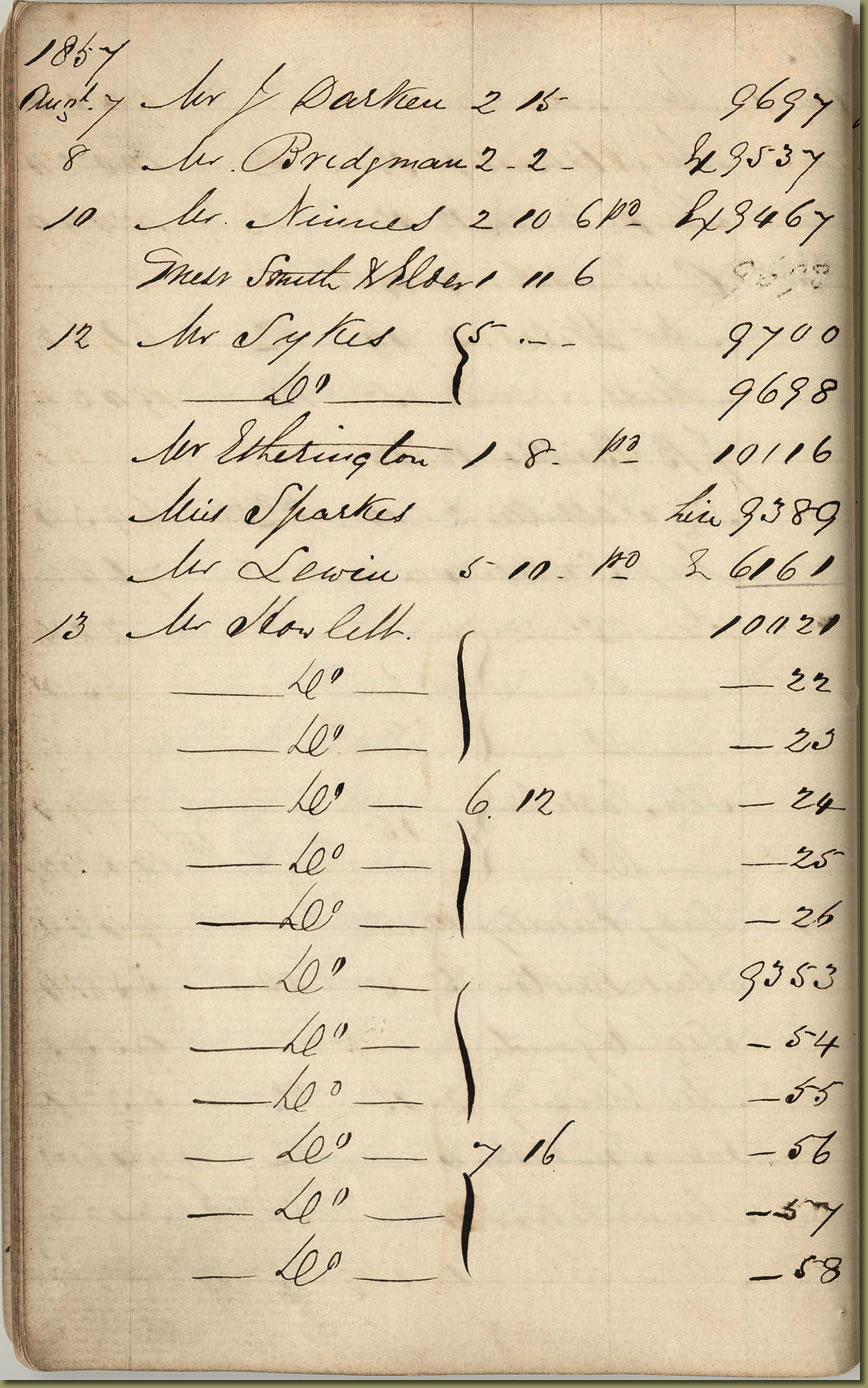 1857
Augt. 7 Mr J Darken 2 15 9697
8 Mr. Bridgman 2 - 2 - Ex 9537
10 Mr. Ninnes 2 10 6 po Ex 9467
Messr Smith & Elder 1 11 6
12 Mr Sykes { 5 . - - 9700
— Do — 9698
Mr Etherington 1 - 8 - po 10116
Miss Sparkes Lin 9389
Mr Lewin 5 10 - po 6161
13 Mr Howlett. 10021
— Do — — 22
— Do — — 23
— Do — 6. 12 — 24
— Do — — 25
— Do — — 26
— Do — 9353
— Do — — 54
— Do — — 55
— Do — 7 16 — 56
— Do — — 57
— Do — — 58